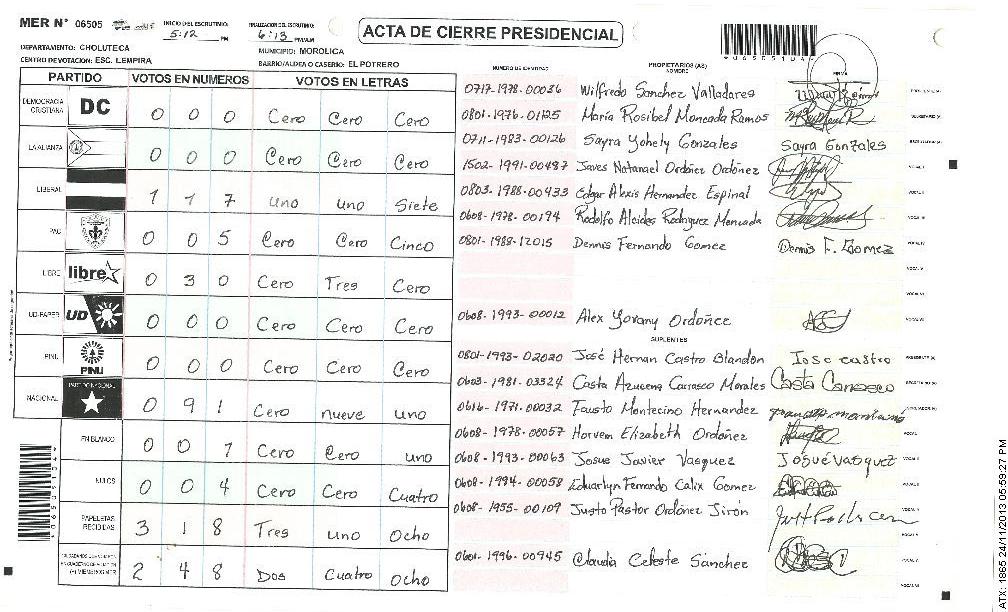 MER N° 06505
INICIO DEL ESCRUTINIO: 5:12 PM
FINALIZACION DEL ESCRUTINIO: 6:13 PM/AM
ACTA DE CIERRE PRESIDENCIAL
*06505104*
DEPARTAMENTO: CHOLUTECA
MUNICIPIO: MOROLICA
CENTRO DE VOTACION: ESC. LEMPIRA
BARRIO/ALDEA O CASERIO: EL POTRERO
PARTIDO VOTOS EN NUMEROS VOTOS EN LETRAS
DEMOCRACIA CRISTIANA DC 0 0 0 Cero Cero Cero
LA ALIANZA 0 0 0 Cero Cero Cero
LIBERAL 1 1 7 uno uno Siete
PAC 0 0 5 Cero Cero Cinco
LIBRE libre 0 3 0 Cero Tres Cero
UD-FAPER UD 0 0 0 Cero Cero Cero
PINU PINU 0 0 0 Cero Cero Cero
NACIONAL PARTIDO NACIONAL 0 9 1 Cero nueve uno
EN BLANCO 0 0 1 Cero Cero uno
NULOS 0 0 4 Cero Cero Cuatro
PAPELETAS RECIBIDAS 3 1 8 Tres uno Ocho
(+) MIEMBROS MER 2 4 8 Dos Cuatro Ocho
NUMERO DE IDENTIDAD PROPIETARIOS (AS) NOMBRE FIRMA
0717-1978-00036 Wilfredo Sanchez Valladares PRESIDENTE (A)
0801-1976-01125 María Rosibel Moncada Ramos SECRETARIO (A)
0711-1983-00126 Sayra Yohely Gonzales Sayra Gonzales
1502-1991-00487 Ordóñez VOCAL I
0803-1988-00433 Edgar Alexis Hernandez Espinal VOCAL II
0608-1978-00194 Rodolfo Alcides Rodriguez Moncada VOCAL III
0801-1988-12015 Dennis Fernando Gomez Dennis F. Gomez VOCAL IV
VOCAL V
VOCAL VI
0608-1993-00012 Alex Yovany Ordoñez
SUPLENTES
0801-1993-02020 José Hernan Castro Blandon Jose castro PRESIDENTE (A)
0603-1981-03324 Casta Azucena Carrasco Morales Casta Carrasco SECRETARIO (A)
0616-1971-00032 Fausto Montecino Hernandez
0608-1978-00057 Elizabeth Ordoñez VOCAL I
0608-1993-00063 Josue Javier Vasquez Josué Vasquez
0608-1994-00058 Fernando Calix Gomez
0608-1955-00109 Justo Pastor Ordoñez Jirón
0601-1996-00945 Claudia Celeste Sánchez
*06505104*
ATX: 1865 24/11/2013 05:59:27 PM